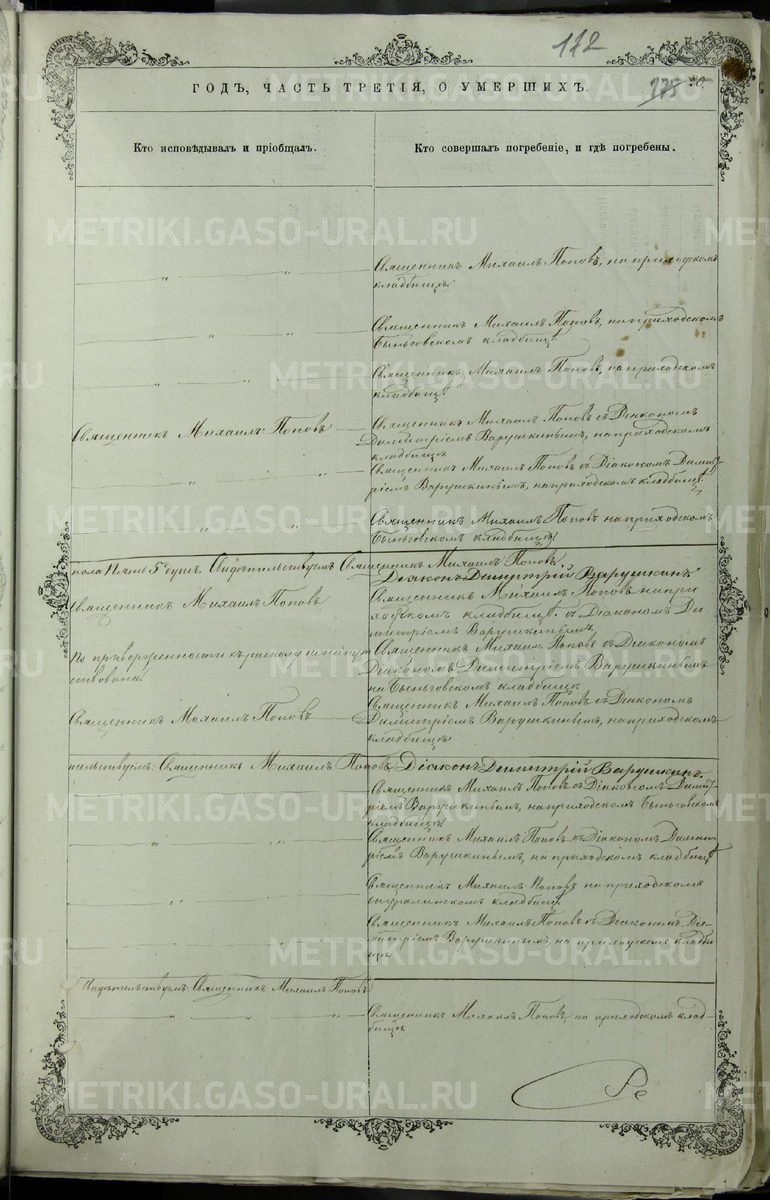 172
175 20.
ГОДЪ, ЧАСТЬ ТРЕТІЯ, О УМЕРШИХЪ.
Кто исповѣдывалъ и пріобщалъ.
Кто совершалъ погребеніе, и гдѣ погребены.
Священникъ Михаилъ Поповъ, на приходскомъ
кладбищѣ.
Священникъ Михаилъ Поповъ, на приходскомъ
Быньговскомъ кладбищѣ
Священникъ Михаилъ Поповъ, на приходскомъ
кладбищѣ
Священникъ Михаилъ Поповъ
Священникъ Михаилъ Поповъ съ Діакономъ
Димитріемъ Варушкинымъ, на приходскомъ
кладбищѣ
Священникъ Михаилъ Поповъ съ Діакономъ Димит-
ріемъ Варушкинымъ, на приходскомъ кладбищѣ
Священникъ Михаилъ Поповъ на приходскомъ
Быньговскомъ кладбищѣ.
пола Пять 5 душъ. Свидѣтельствуемъ Священникъ Михаилъ Поповъ
Діаконъ Димитрій Варушкинъ
Священникъ Михаилъ Поповъ
Священникъ Михаилъ Поповъ на при-
ходскомъ кладбищѣ съ Діакономъ Ди-
митріемъ Варушкинымъ
По приверженности къ расколу
Священникъ Михаилъ Поповъ съ Діакономъ
Діакономъ Димитріемъ Варушкинымъ
на Быньговскомъ кладбищѣ
Священникъ Михаилъ Поповъ
Священникъ Михаилъ Поповъ съ Діакономъ
Димитріемъ Варушкинымъ, на приходскомъ
кладбищѣ
тельствуемъ: Священникъ Михаилъ Поповъ, Діаконъ Димитрій Варушкинъ
Священникъ Михаилъ Поповъ съ Діакономъ Димит-
ріемъ Варушкинымъ, на приходскомъ Быньговскомъ
кладбищѣ
Священникъ Михаилъ Поповъ съ Діакономъ Димит-
ріемъ Варушкинымъ, на приходскомъ кладбищѣ
Священникъ Михаилъ Поповъ на приходскомъ
кладбищѣ
Священникъ Михаилъ Поповъ съ Діакономъ Ди-
митріемъ Варушкинымъ, на приходскомъ кладби-
щѣ
Свидѣтельствуемъ: Священникъ Михаилъ Поповъ
Священникъ Михаилъ Поповъ, на приходскомъ клад-
бищѣ
METRIKI.GASO-URAL.RU